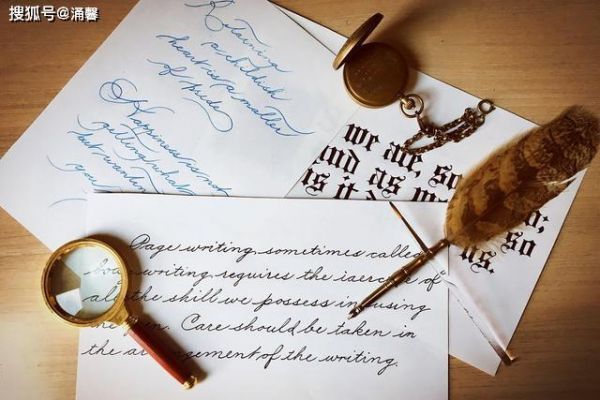 搜狐号@涌馨
Retaining
a childish
heart is a matter
of pride
Happiness is not
getting what
you
we are, so
and as
is it
so
us.
Page writing, sometimes called
body writing, requires the of
all the skill we possess in using
the pen. Care should be taken in
the of the writing.